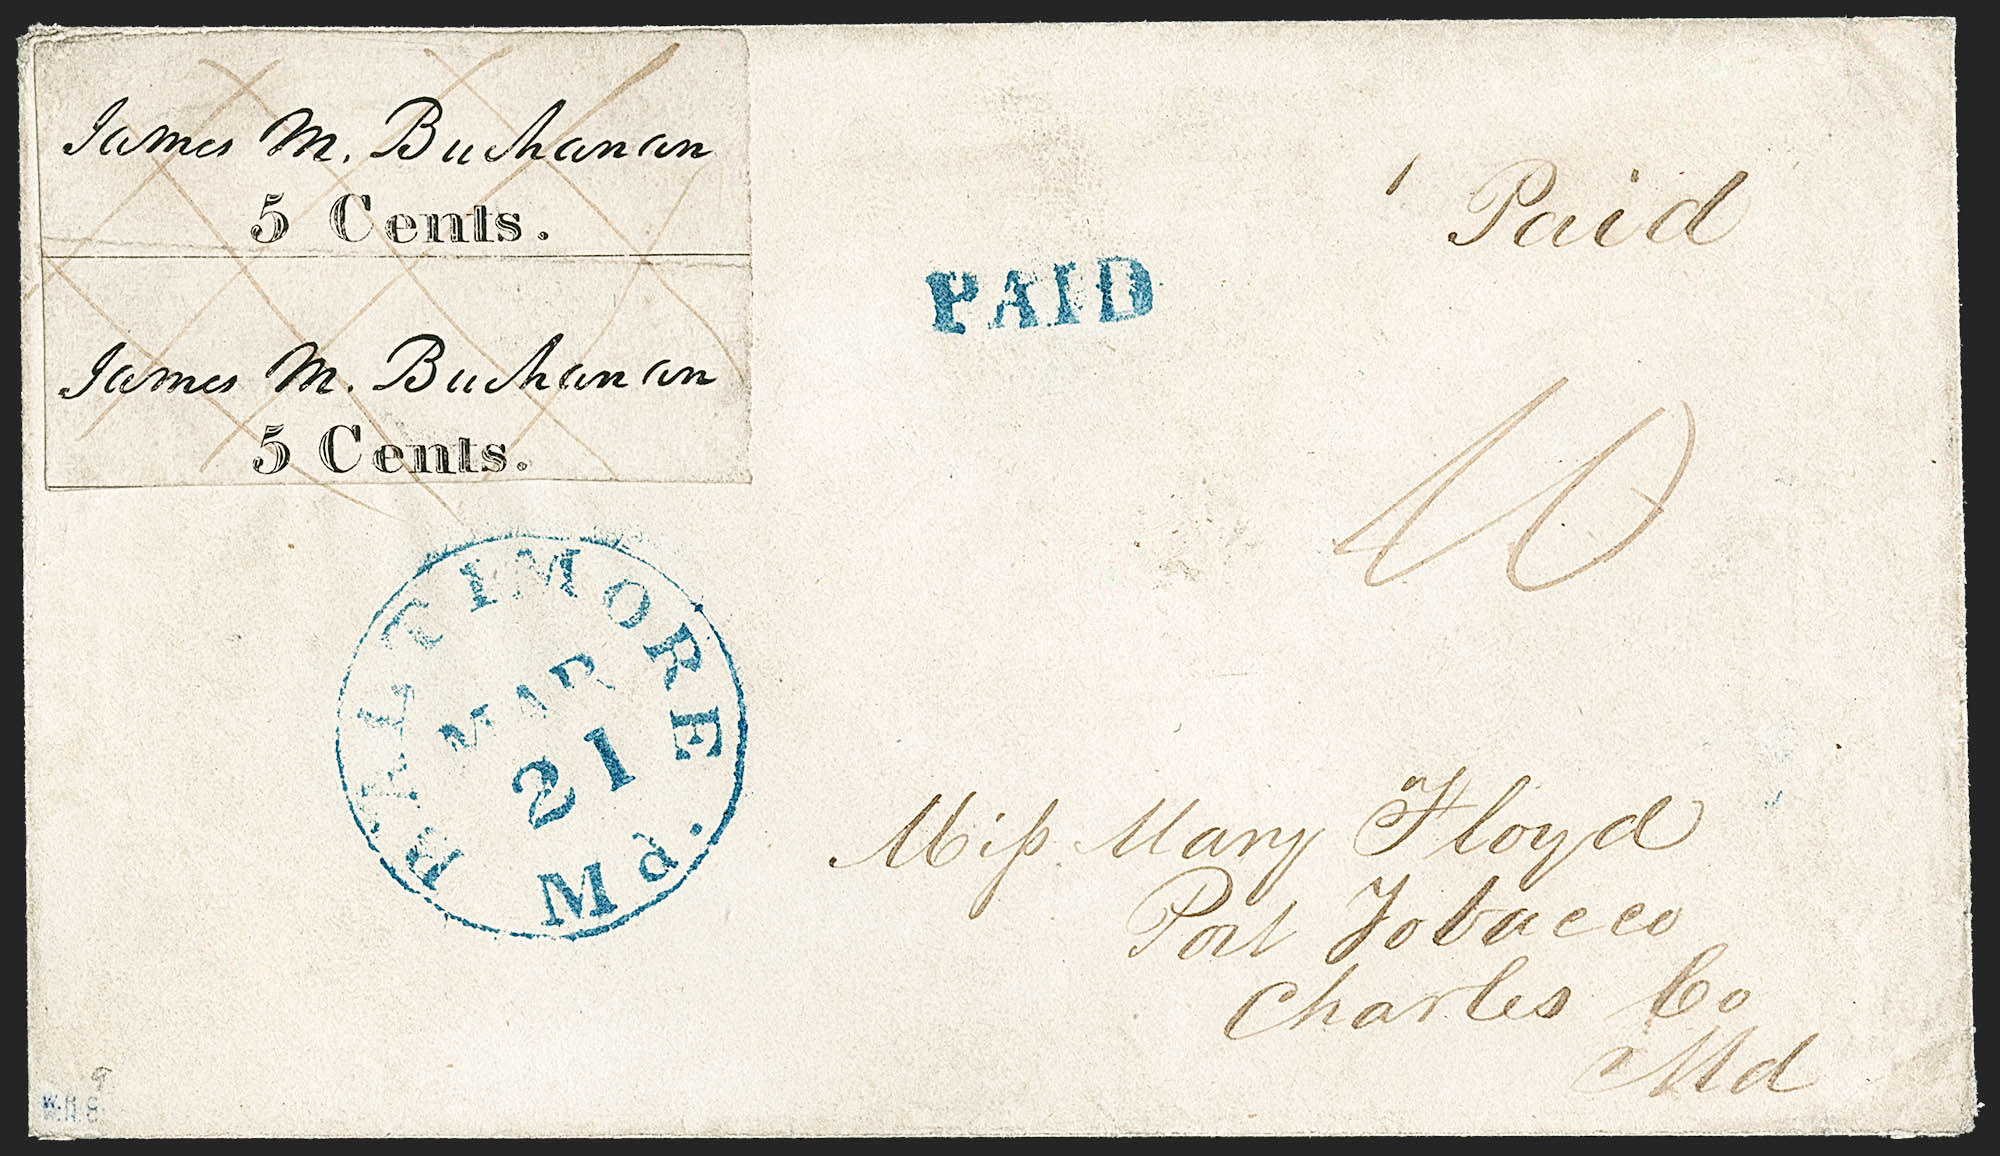 James M. Buchanan
5 Cents.
James M. Buchanan
5 Cents.
Paid
PAID
10
BALTIMORE Md.
MAR
21
Miss Mary Floyd
Port Tobacco
Charles Co
Md